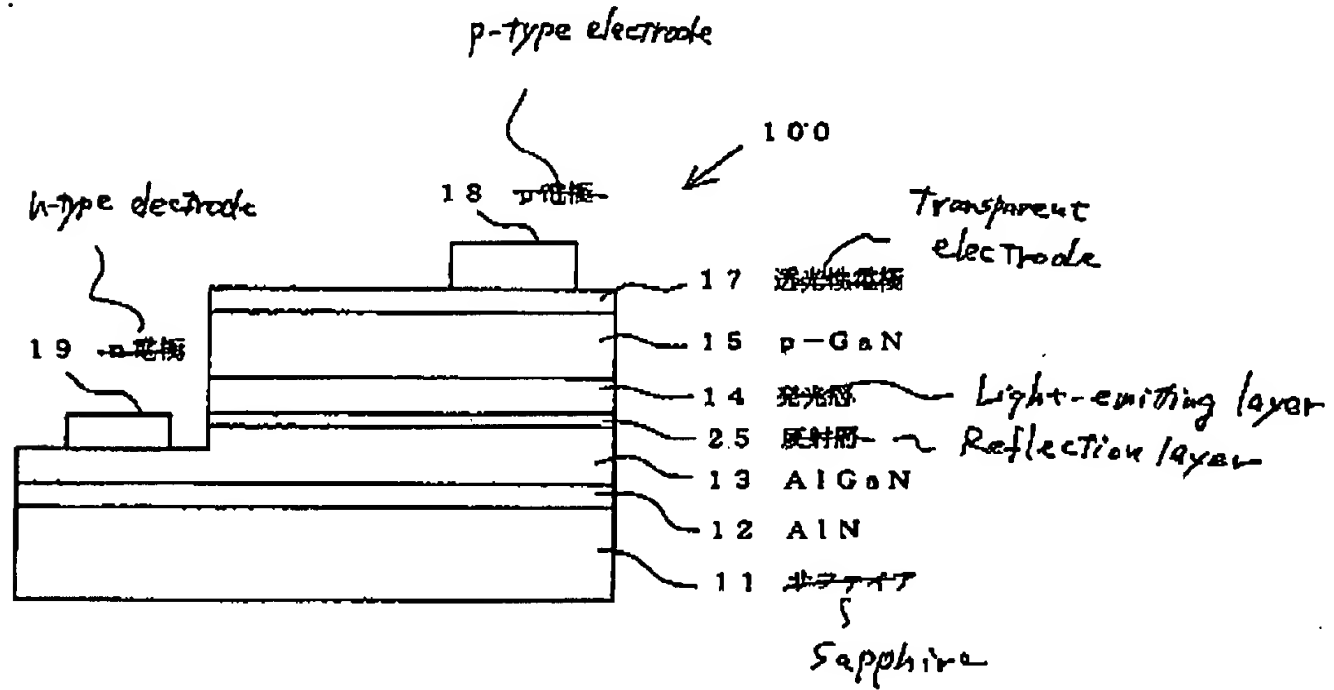 p-type electrode
100
18 p電極
n-type electrode
Transparent
electrode
17 透光性電極
19 n電極
15 p-GaN
14 発光層
Light-emitting layer
25 反射層
Reflection layer
13 AlGaN
12 AlN
11 サファイア
Sapphire